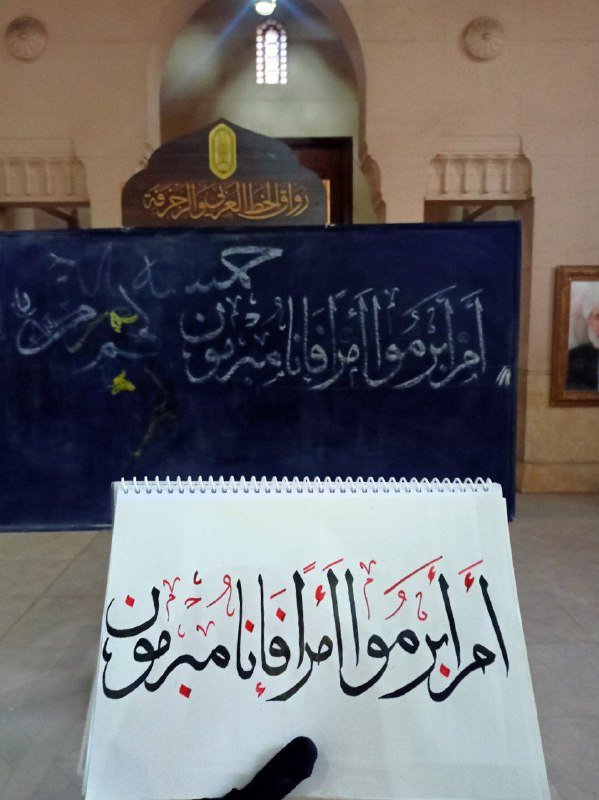 رواق الخط العربي والزخرفة
أم أبرموا أمرا فإنا مبرمون
أَم أبرَمُوا أمرًا فَإنا مُبرمون